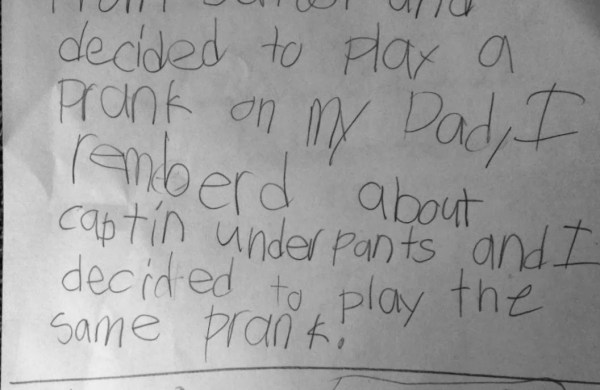 and
decided to play a
prank on my Dad, I
remberd about
captin underpants and I
decided to play the
same prank.